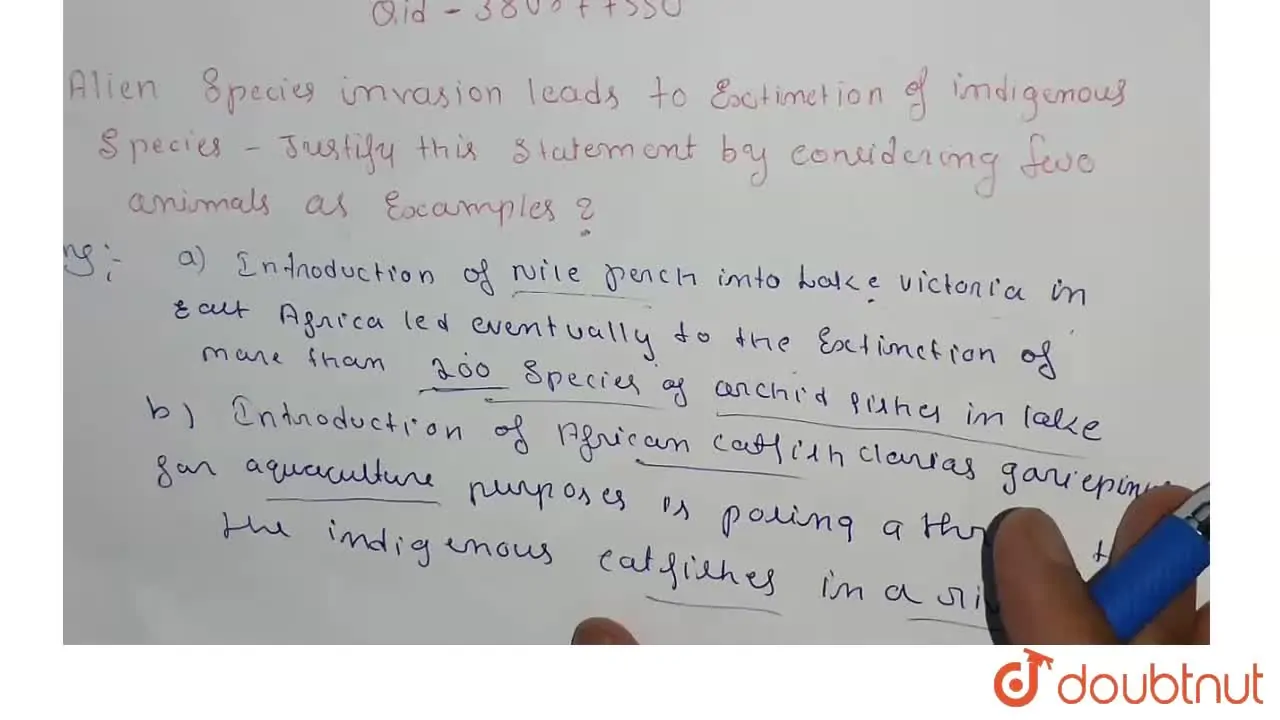 Qid - 3805
Alien Species invasion leads to Extinction of indigenous
Species - Justify this statement by considering two
animals as Examples ?
ns :-
a) Introduction of nile perch into Lake victoria in
East Africa led eventually to the Extinction of
more than 200 Species of archid fishes in lake
b) Introduction of African catfish clarias gariepin
for aquaculture purposes is posing a thr
the indigenous catfishes in a ri
doubtnut